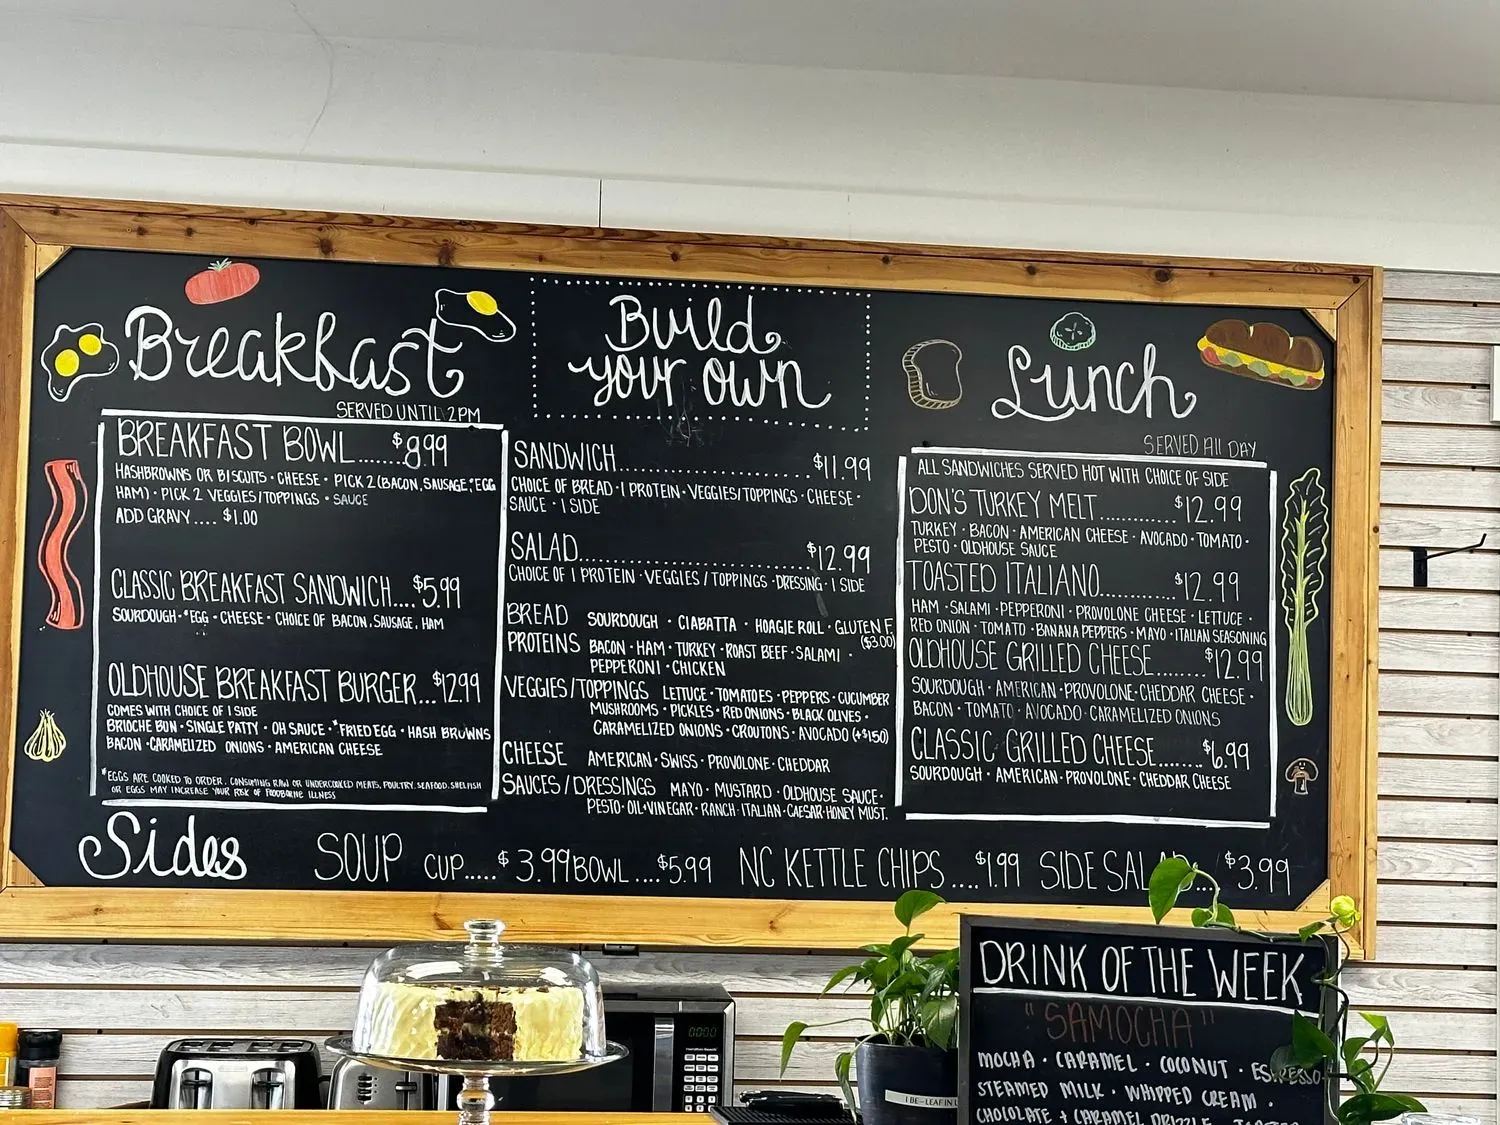 Breakfast
SERVED UNTIL 2PM
BREAKFAST BOWL.......$8.99
HASHBROWNS OR BISCUITS · CHEESE · PICK 2 (BACON, SAUSAGE, *EGG
HAM) · PICK 2 VEGGIES/TOPPINGS · SAUCE
ADD GRAVY.... $1.00
CLASSIC BREAKFAST SANDWICH....$5.99
SOURDOUGH · *EGG · CHEESE · CHOICE OF BACON, SAUSAGE, HAM
OLDHOUSE BREAKFAST BURGER...$12.99
COMES WITH CHOICE OF 1 SIDE
BRIOCHE BUN · SINGLE PATTY · OH SAUCE · *FRIED EGG · HASH BROWNS
BACON · CARAMELIZED ONIONS · AMERICAN CHEESE
*EGGS ARE COOKED TO ORDER. CONSUMING RAW OR UNDERCOOKED MEATS, POULTRY, SEAFOOD, SHELLFISH
OR EGGS MAY INCREASE YOUR RISK OF FOODBORNE ILLNESS
Build
your own
SANDWICH.......................$11.99
CHOICE OF BREAD · 1 PROTEIN · VEGGIES/TOPPINGS · CHEESE ·
SAUCE · 1 SIDE
SALAD..........................$12.99
CHOICE OF 1 PROTEIN · VEGGIES / TOPPINGS · DRESSING · 1 SIDE
BREAD SOURDOUGH · CIABATTA · HOAGIE ROLL · GLUTEN F
($3.00)
PROTEINS BACON · HAM · TURKEY · ROAST BEEF · SALAMI ·
PEPPERONI · CHICKEN
VEGGIES/TOPPINGS LETTUCE · TOMATOES · PEPPERS · CUCUMBER
MUSHROOMS · PICKLES · RED ONIONS · BLACK OLIVES ·
CARAMELIZED ONIONS · CROUTONS · AVOCADO (+$1.50)
CHEESE AMERICAN · SWISS · PROVOLONE · CHEDDAR
SAUCES/DRESSINGS MAYO · MUSTARD · OLDHOUSE SAUCE ·
PESTO · OIL · VINEGAR · RANCH · ITALIAN · CAESAR · HONEY MUST.
Lunch
SERVED All DAY
ALL SANDWICHES SERVED HOT WITH CHOICE OF SIDE
DON'S TURKEY MELT.............$12.99
TURKEY · BACON · AMERICAN CHEESE · AVOCADO · TOMATO ·
PESTO · OLDHOUSE SAUCE
TOASTED ITALIANO.............$12.99
HAM · SALAMI · PEPPERONI · PROVOLONE CHEESE · LETTUCE ·
RED ONION · TOMATO · BANANA PEPPERS · MAYO · ITALIAN SEASONING
OLDHOUSE GRILLED CHEESE........$12.99
SOURDOUGH · AMERICAN · PROVOLONE · CHEDDAR CHEESE ·
BACON · TOMATO · AVOCADO · CARAMELIZED ONIONS
CLASSIC GRILLED CHEESE........$6.99
SOURDOUGH · AMERICAN · PROVOLONE · CHEDDAR CHEESE
Sides SOUP CUP.....$3.99 BOWL....$5.99 NC KETTLE CHIPS....$1.99 SIDE SALAD... $3.99
DRINK OF THE WEEK
"SAMOCHA"
MOCHA · CARAMEL · COCONUT · ESPRESSO
STEAMED MILK · WHIPPED CREAM ·
CHOCOLATE + CARAMEL DRIZZLE
I BE-LEAF IN